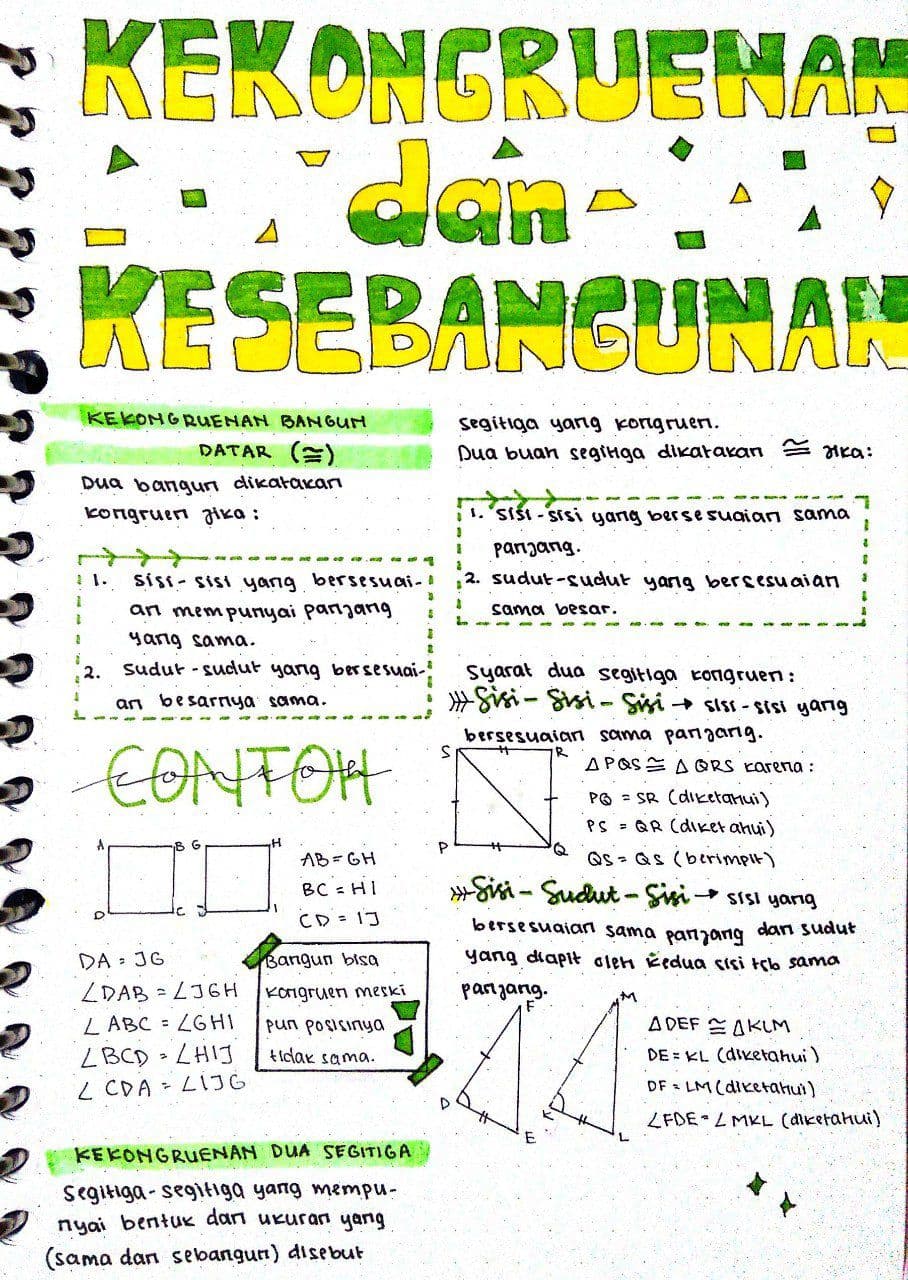 KEKONGRUENAN
dan
KESEBANGUNAN
KEKONGRUENAN BANGUN
DATAR (≅)
Dua bangun dikatakan
kongruen jika :
1. sisi-sisi yang bersesuai-
an mempunyai panjang
yang sama.
2. sudut-sudut yang bersesuai-
an besarnya sama.
CONTOH
contoh
A B G H
D C J I
AB = GH
BC = HI
CD = IJ
DA = JG
∠DAB = ∠JGH
∠ABC = ∠GHI
∠BCD = ∠HIJ
∠CDA = ∠IJG
Bangun bisa
kongruen meski
pun posisinya
tidak sama.
KEKONGRUENAN DUA SEGITIGA
Segitiga-segitiga yang mempu-
nyai bentuk dan ukuran yang
(sama dan sebangun) disebut
segitiga yang kongruen.
Dua buah segitiga dikatakan ≅ jika:
1. sisi-sisi yang bersesuaian sama
panjang.
2. sudut-sudut yang bersesuaian
sama besar.
Syarat dua segitiga kongruen:
Sisi - Sisi - Sisi → sisi-sisi yang
bersesuaian sama panjang.
S R
P Q
∆PQS ≅ ∆QRS karena :
PQ = SR (diketahui)
PS = QR (diketahui)
QS = QS (berimpit)
Sisi - Sudut - Sisi → sisi yang
bersesuaian sama panjang dan sudut
yang diapit oleh kedua sisi tsb sama
panjang.
F M
D K
E L
∆DEF ≅ ∆KLM
DE = KL (diketahui)
DF = LM (diketahui)
∠FDE = ∠MKL (diketahui)